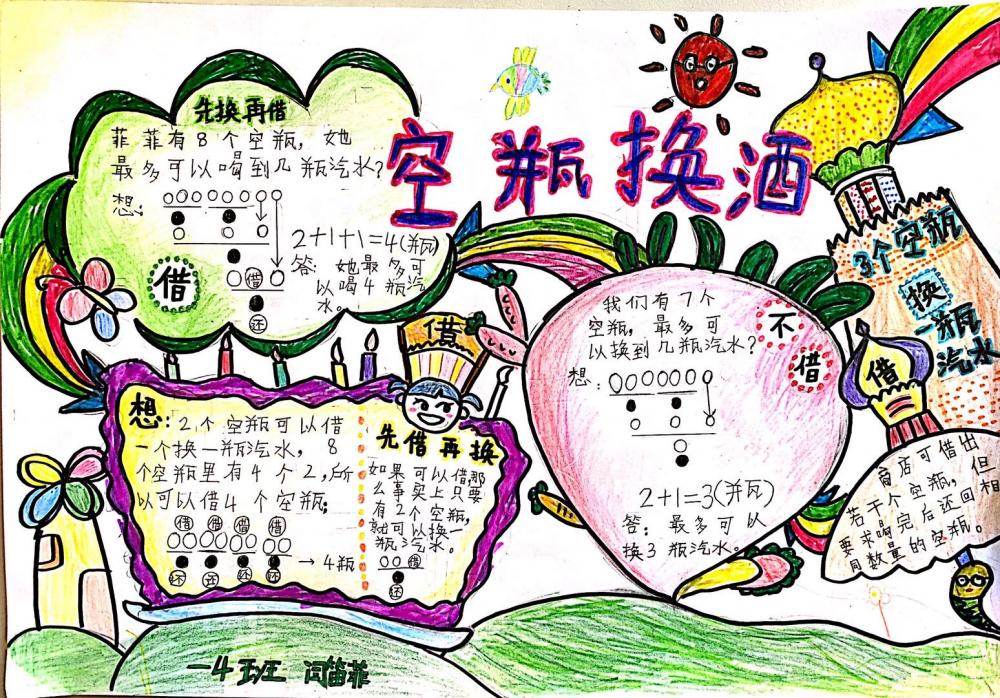 空瓶换酒
先换再借
菲菲有8个空瓶，她
最多可以喝到几瓶汽水？
想：
2+1+1=4(瓶)
答：她最多可
以喝4瓶汽
水。
借
借
还
借
想：2个空瓶可以借
一个换一瓶汽水，8
个空瓶里有4个2，所
以可以借4个空瓶；
借 借 借 借
→4瓶
还 还 还 还
先借再换
如果可以借那
么事实上只要
有2个空瓶，
就可以换一
瓶汽水。
借
还
我们有7个
空瓶，最多可
以换到几瓶汽水？
不
借
想：
2+1=3(瓶)
答：最多可以
换3瓶汽水。
3个空瓶
换
一瓶
汽水
借
商店可借出
若干个空瓶，但
要求喝完后还回相
同数量的空瓶。
一4班 闫笛菲